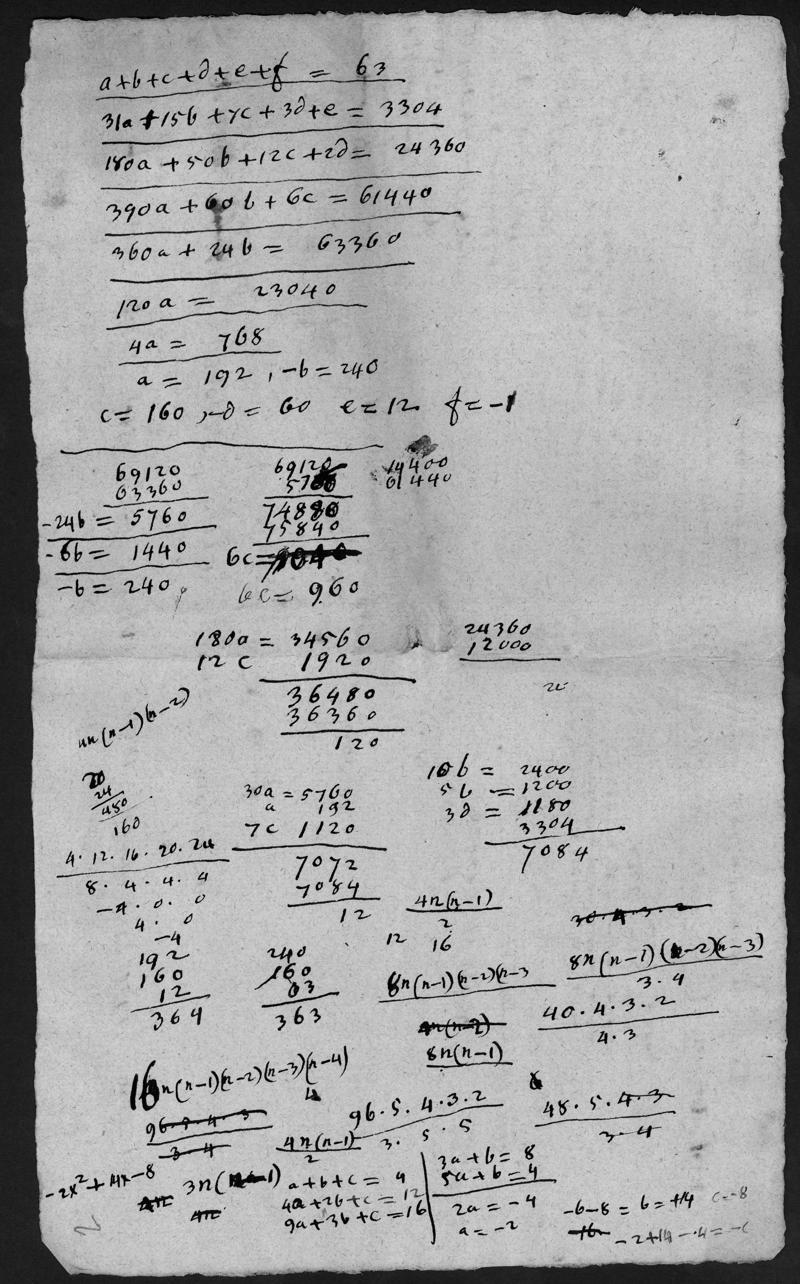 a+b+c+d+e+f = 63
31a+15b+7c+3d+e = 3304
180a+50b+12c+2d = 24360
390a+60b+6c = 61440
360a+24b = 63360
120a = 23040
4a = 768
a = 192, -b = 240
c = 160, -d = 60 e = 12 f = -1
69120 69120 14400
63360 5760 61440
-24b = 5760 74880
75840
-6b = 1440 6c =
-b = 240 6c = 960
180a = 34560 24360
12c 1920 12000
36480
36360
120
n(n-1)(n-2)
10b = 2400
24 30a = 5760 5b = 1200
480 a 192 3d = 180
160 7c 1120 3304
4.12.16.20.24 7072 7084
8.4.4.4 7084
-4.0.0 12 4n(n-1)
4.0 2 30.4.3.2
-4 12 16
192 240 8n(n-1)(n-2)(n-3)
160 160 8n(n-1)(n-2)(n-3 3.4
12 63 40.4.3.2
364 363 4n(n-2) 4.3
8n(n-1)
16n(n-1)(n-2)(n-3)(n-4)
4
96.5.4.3.2 48.5.4.3
3.4 4n(n-1) 3.5.5 3.4
2
-2x²+14x-8 3n( -1) a+b+c = 4 3a+b = 8
4n 4a+2b+c = 12 5a+b = 4
4n 9a+3b+c = 16 2a = -4 -6-8 = b = +14 c=-8
a = -2 16 -2+14-4 = -c